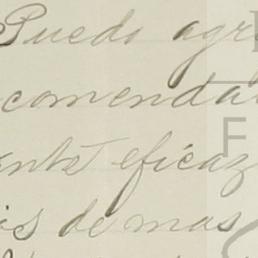 Puedo agr
comenda
ente eficaz
is de mas